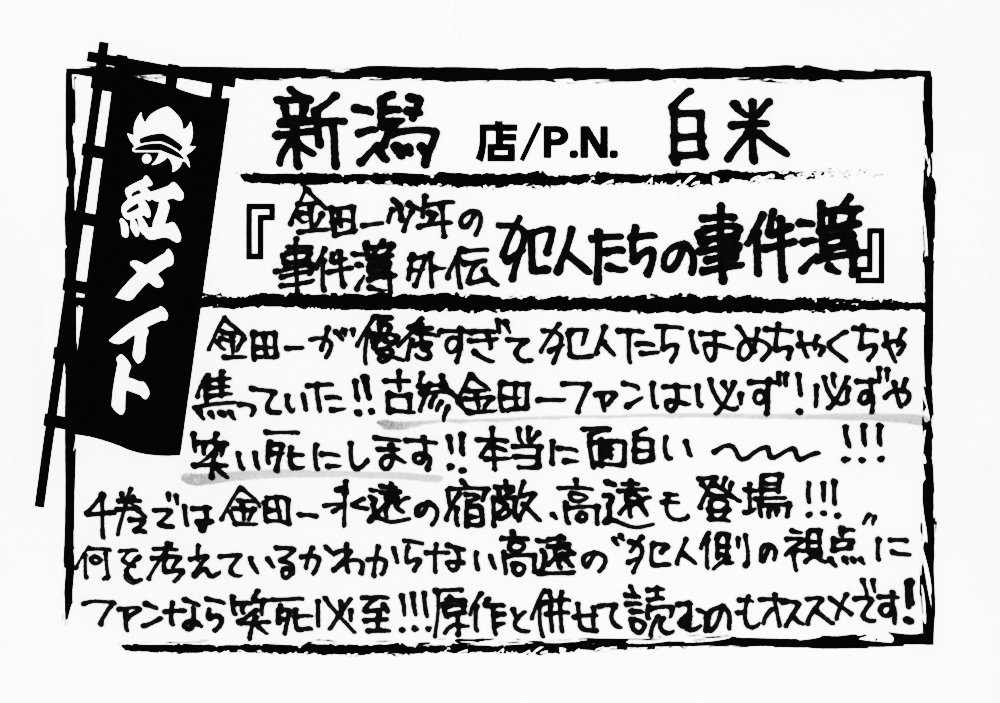 紅メイト
新潟 店/P.N. 白米
『金田一少年の
事件簿 外伝 犯人たちの事件簿』
金田一が優秀すぎて犯人たちはめちゃくちゃ
焦っていた!!古参金田一ファンは必ず!必ずや
笑い死にします!!本当に面白い〜〜!!!
4巻では金田一永遠の宿敵、高遠も登場!!!
何を考えているかわからない高遠の〝犯人側の視点〟に
ファンなら笑死必至!!!原作と併せて読むのもオススメです!